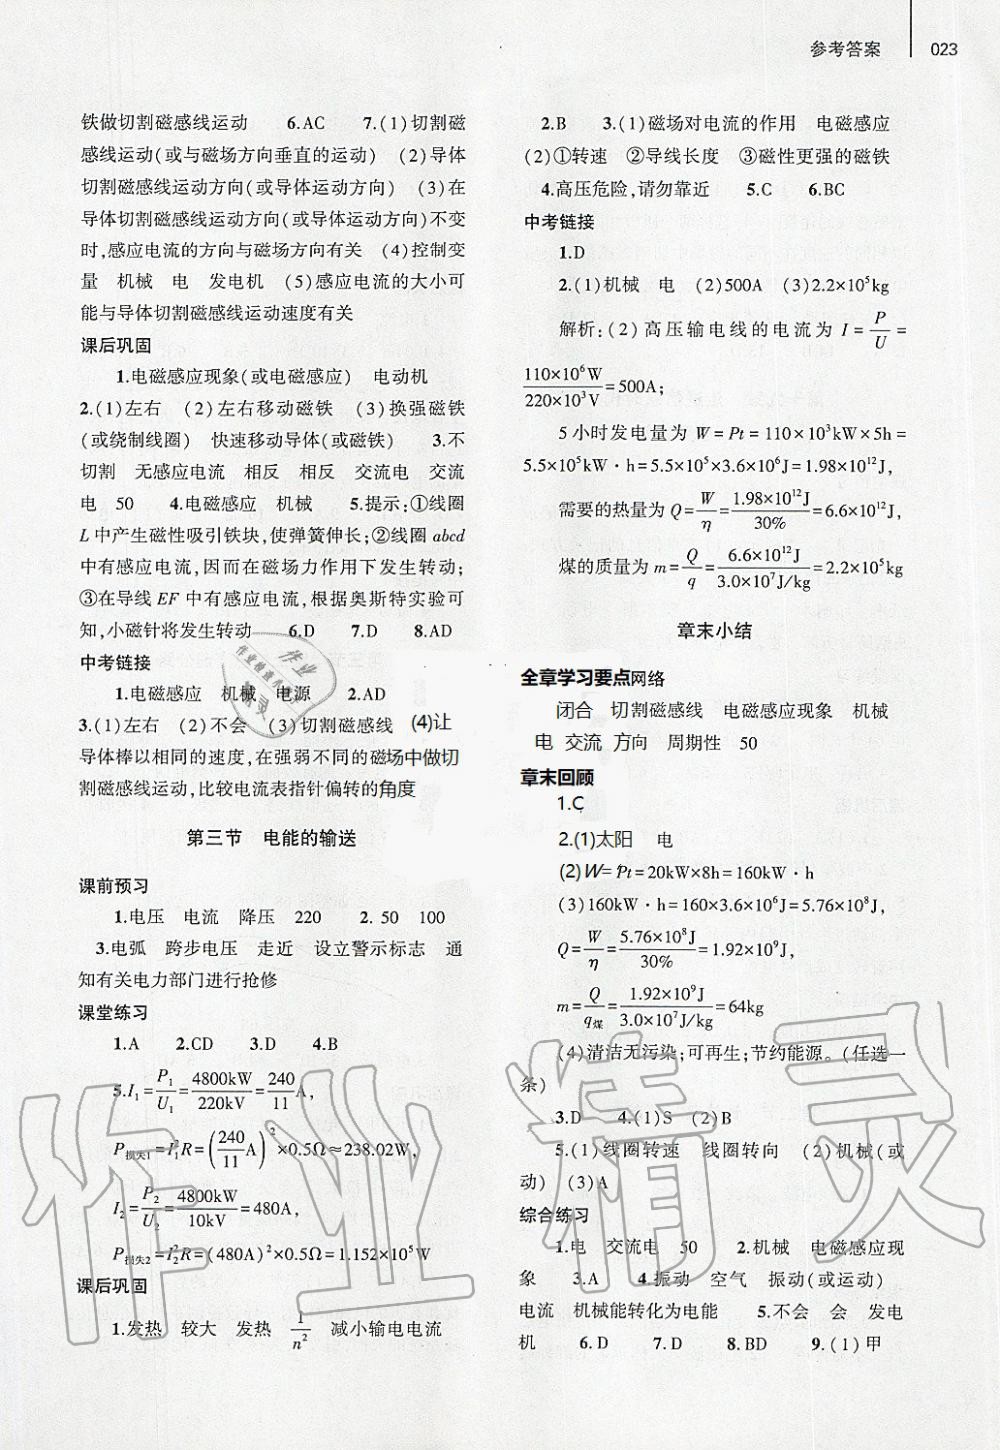 参考答案 023
铁做切割磁感线运动 6.AC 7.(1)切割磁
感线运动(或与磁场方向垂直的运动) (2)导体
切割磁感线运动方向(或导体运动方向) (3)在
导体切割磁感线运动方向(或导体运动方向)不变
时,感应电流的方向与磁场方向有关 (4)控制变
量 机械 电 发电机 (5)感应电流的大小可
能与导体切割磁感线运动速度有关
课后巩固
1.电磁感应现象(或电磁感应) 电动机
2.(1)左右 (2)左右移动磁铁 (3)换强磁铁
(或绕制线圈) 快速移动导体(或磁铁) 3.不
切割 无感应电流 相反 相反 交流电 交流
电 50 4.电磁感应 机械 5.提示:①线圈
L中产生磁性吸引铁块,使弹簧伸长;②线圈abcd
中有感应电流,因而在磁场力作用下发生转动;
③在导线EF中有感应电流,根据奥斯特实验可
知,小磁针将发生转动 6.D 7.D 8.AD
中考链接
1.电磁感应 机械 电源 2.AD
3.(1)左右 (2)不会 (3)切割磁感线 (4)让
导体棒以相同的速度,在强弱不同的磁场中做切
割磁感线运动,比较电流表指针偏转的角度
第三节 电能的输送
课前预习
1.电压 电流 降压 220 2.50 100
3.电弧 跨步电压 走近 设立警示标志 通
知有关电力部门进行抢修
课堂练习
1.A 2.CD 3.D 4.B
5.I₁=P₁/U₁=4800kW/220kV=240/11 A,
P损失1=I₁²R=(240/11 A)²×0.5Ω≈238.02W,
I₂=P₂/U₂=4800kW/10kV=480A,
P损失2=I₂²R=(480A)²×0.5Ω=1.152×10⁵W
课后巩固
1.发热 较大 发热 1/n² 减小输电电流
2.B 3.(1)磁场对电流的作用 电磁感应
(2)①转速 ②导线长度 ③磁性更强的磁铁
4.高压危险,请勿靠近 5.C 6.BC
中考链接
1.D
2.(1)机械 电 (2)500A (3)2.2×10⁵kg
解析:(2)高压输电线的电流为I=P/U=
110×10⁶W/220×10³V=500A;
5小时发电量为W=Pt=110×10³kW×5h=
5.5×10⁵kW·h=5.5×10⁵×3.6×10⁶J=1.98×10¹²J,
需要的热量为Q=W/η=1.98×10¹²J/30%=6.6×10¹²J,
煤的质量为m=Q/q=6.6×10¹²J/3.0×10⁷J/kg=2.2×10⁵kg
章末小结
全章学习要点网络
闭合 切割磁感线 电磁感应现象 机械
电 交流 方向 周期性 50
章末回顾
1.C
2.(1)太阳 电
(2)W=Pt=20kW×8h=160kW·h
(3)160kW·h=160×3.6×10⁶J=5.76×10⁸J,
Q=W/η=5.76×10⁸J/30%=1.92×10⁹J,
m=Q/q煤=1.92×10⁹J/3.0×10⁷J/kg=64kg
(4)清洁无污染;可再生;节约能源。(任选一
条)
3.D 4.(1)S (2)B
5.(1)线圈转速 线圈转向 (2)机械(或
动) (3)A
综合练习
1.电 交流电 50 2.机械 电磁感应现
象 3.A 4.振动 空气 振动(或运动)
电流 机械能转化为电能 5.不会 会 发电
机 6.D 7.D 8.BD 9.(1)甲
作业精灵